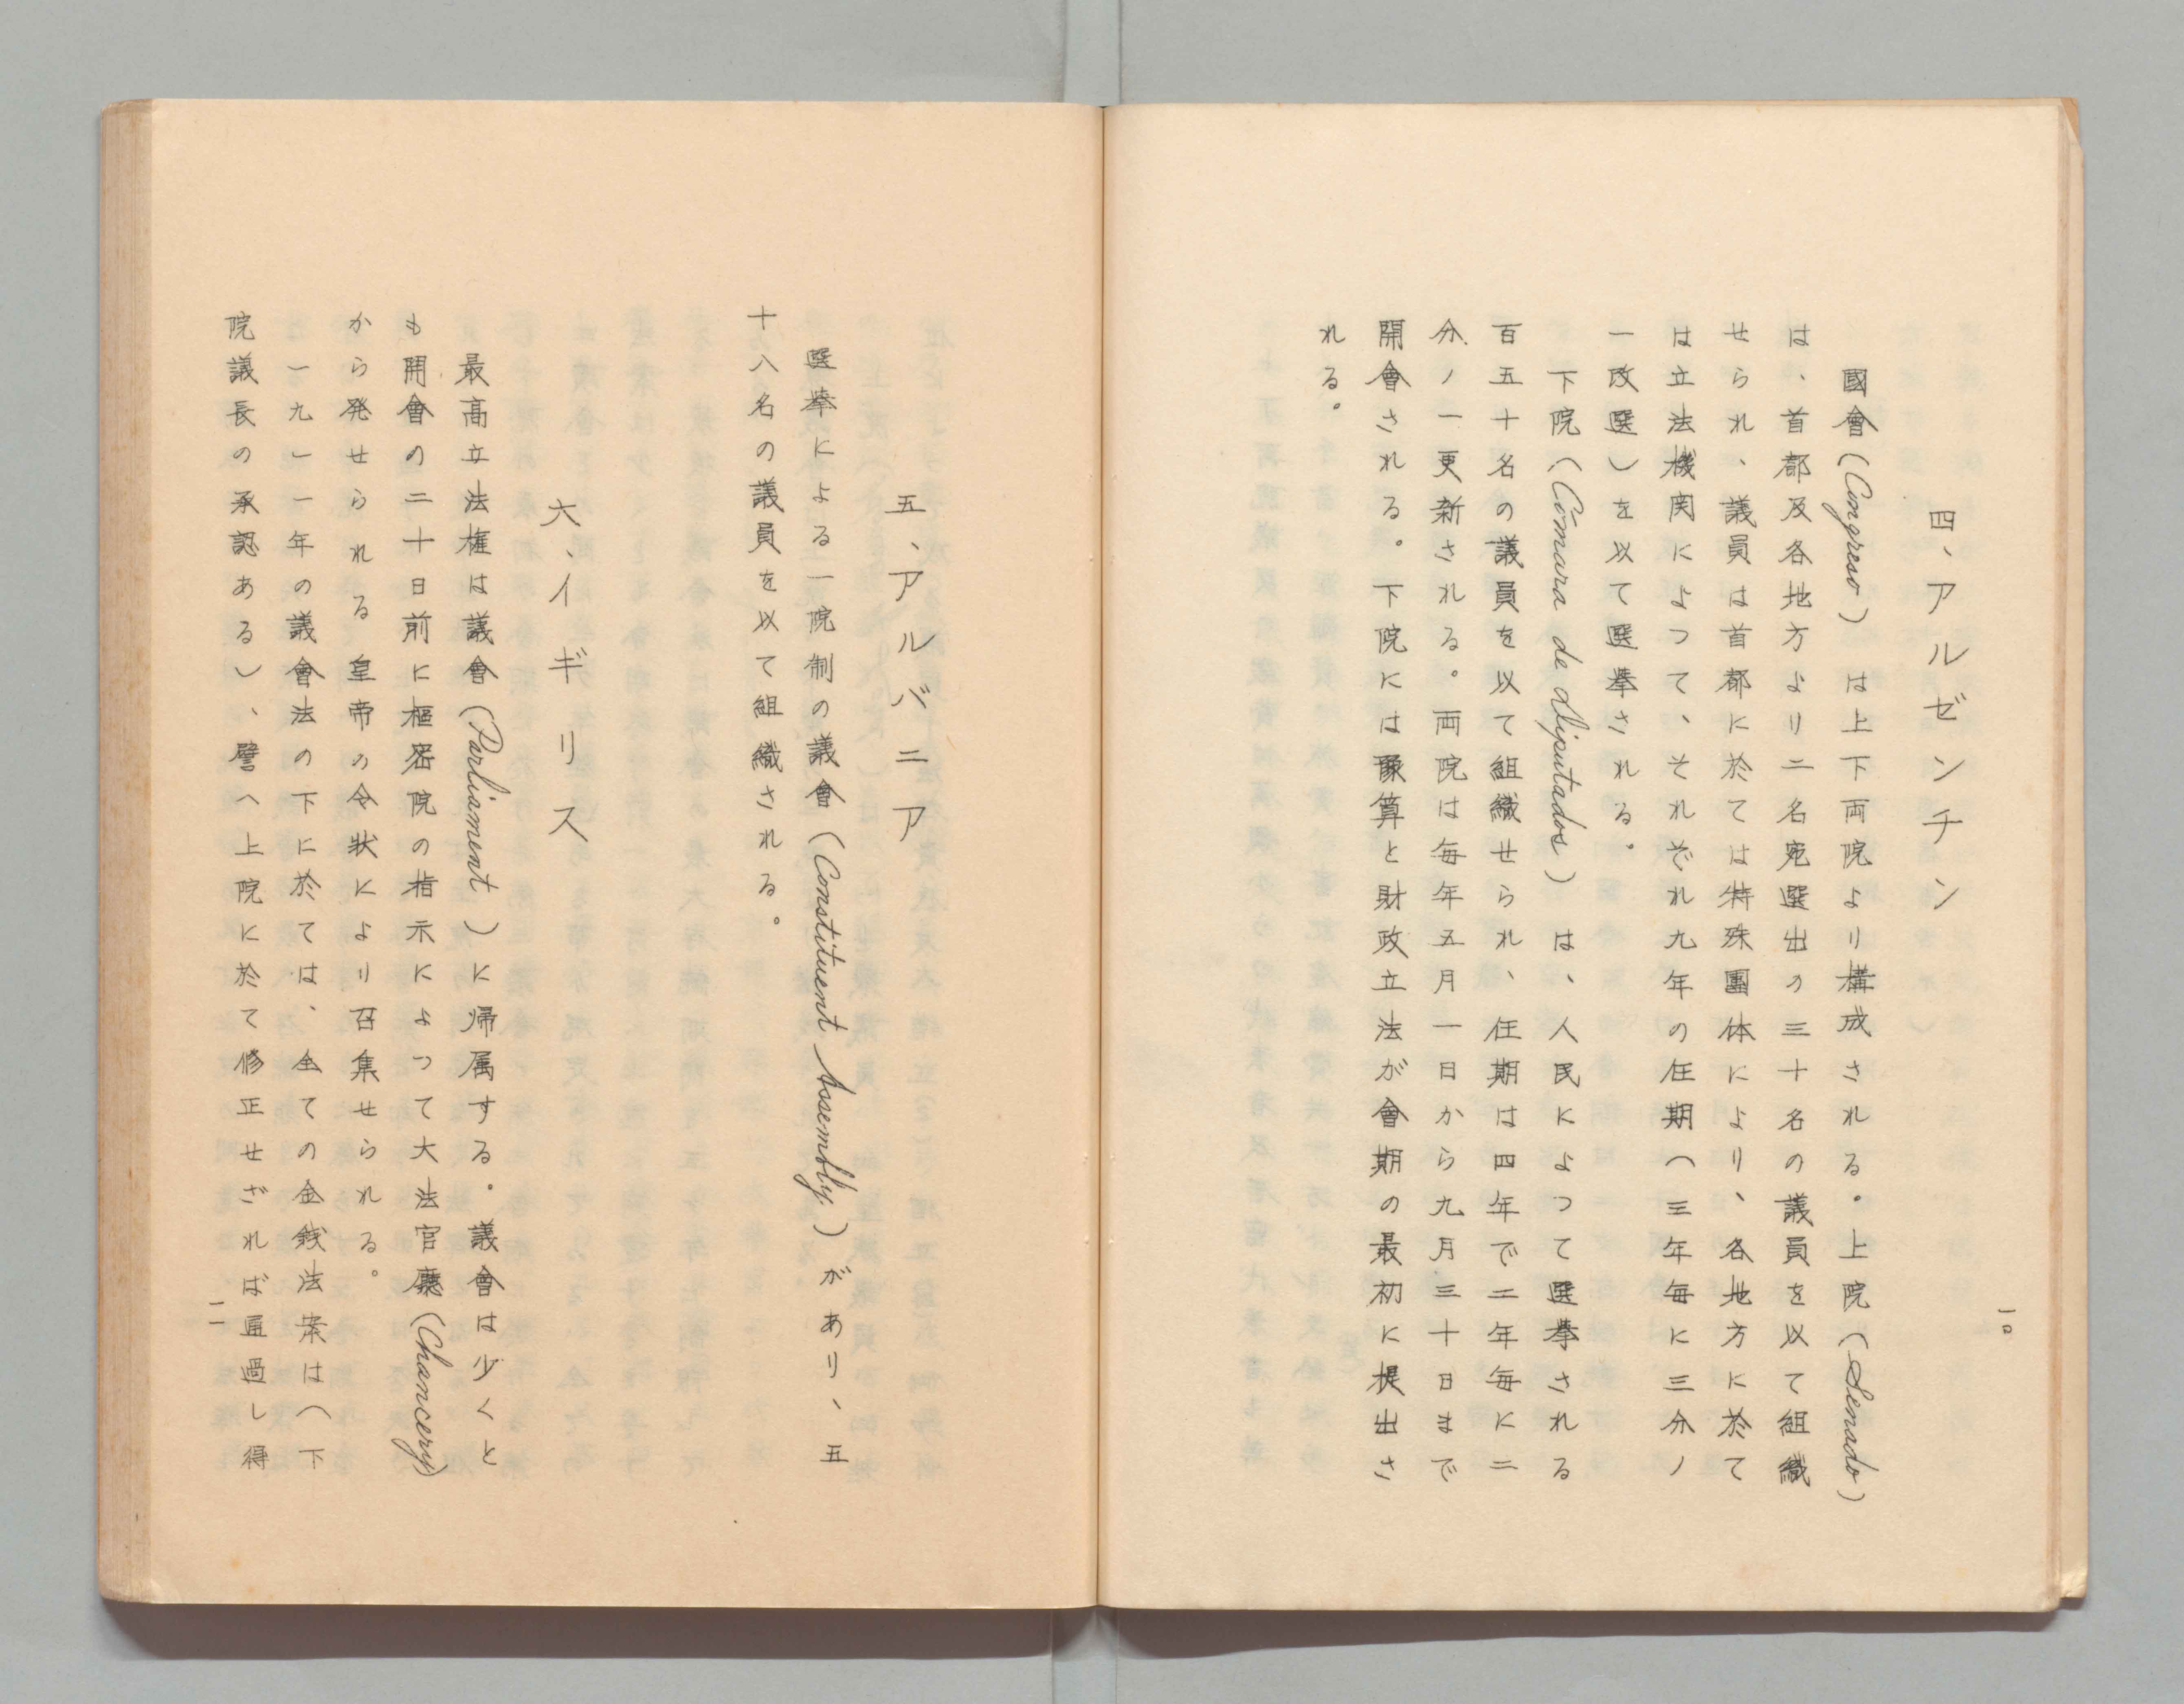 一〇
四、アルゼンチン
國會(Congreso)は上下両院より構成される。上院(Senado)
は、首都及各地方より二名宛選出の三十名の議員を以て組織
せられ、議員は首都に於ては特殊團体により、各地方に於て
は立法機関によつて、それぞれ九年の任期(三年毎に三分ノ
一改選)を以て選挙される。
下院(Cómara de diputados)は、人民によつて選挙される
百五十名の議員を以て組織せられ、任期は四年で二年毎に二
分ノ一更新される。両院は毎年五月一日から九月三十日まで
開會される。下院には豫算と財政立法が會期の最初に提出さ
れる。
五、アルバニア
選挙による一院制の議會(Constituent Assembly)があり、五
十八名の議員を以て組織される。
六、イギリス
最高立法権は議會(Parliament)に帰属する。議會は少くと
も開會の二十日前に樞密院の指示によつて大法官廳(Chancery)
から発せられる皇帝の令状により召集せられる。
一九一一年の議會法の下に於ては、全ての金銭法案は(下
院議長の承認ある)、譬へ上院に於て修正せざれば通過し得
一一